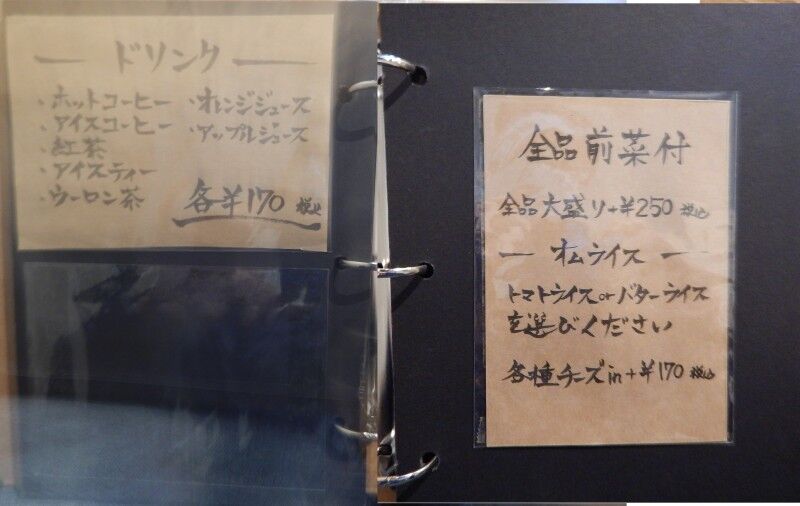 ドリンク
・ホットコーヒー ・オレンジジュース
・アイスコーヒー ・アップルジュース
・紅茶
・アイスティー
・ウーロン茶 各¥170 税込
全品前菜付
全品大盛り+¥250 税込
オムライス
トマトライスorバターライス
を選びください
各種チーズin+¥170 税込